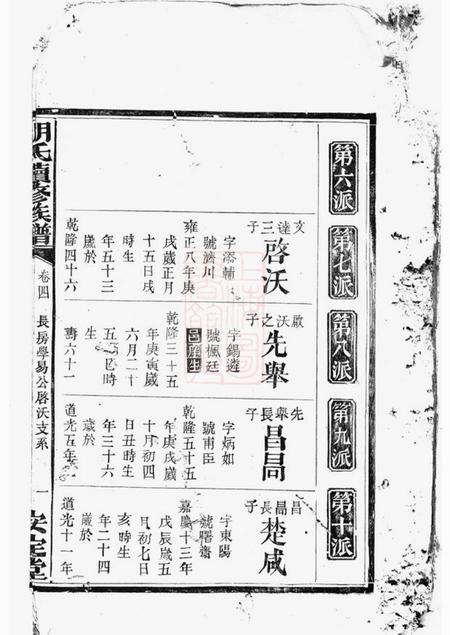 第六派
第七派
第八派
第九派
第十派
文達三子
啓沃
字添輔
號濟川
雍正八年庚
戌歲正月
十五日戌
時生
年五十三
歲於
乾隆四十六
啟沃之子
先舉
字錫遴
號楓廷
邑庠生
乾隆三十五
年庚寅歲
六月二十
五日 時
生
壽六十一
先舉長子
昌咼
字炳如
號甫臣
乾隆五十五
年庚戌歲
十月初四
日丑時生
年三十六
歲於
道光五年
昌咼長子
楚咸
字東陽
號 齋
嘉慶十三年
戊辰歲五
月初七日
亥時生
年二十四
歲於
道光十一年
胡氏續修族譜
卷四
長房學易公啓沃支系
一
安定堂